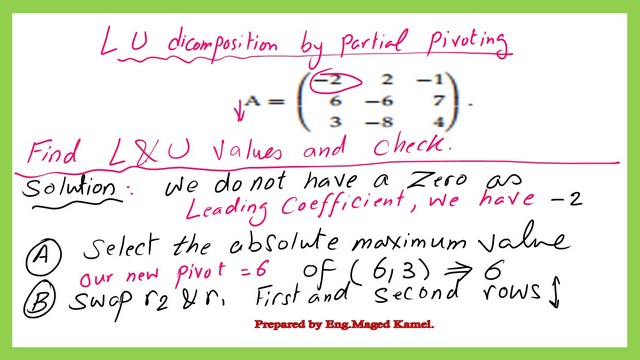 LU dicomposition by partial pivoting
A = ( -2 2 -1
6 -6 7
3 -8 4 ) .
Find L & U values and check.
Solution: we do not have a Zero as
Leading Coefficient, we have -2
(A) Select the absolute maximum value
our new pivot = 6 of (6,3) ⇒ 6
(B) Swap r2 & r1 First and Second rows ↕
Prepared by Eng.Maged Kamel.